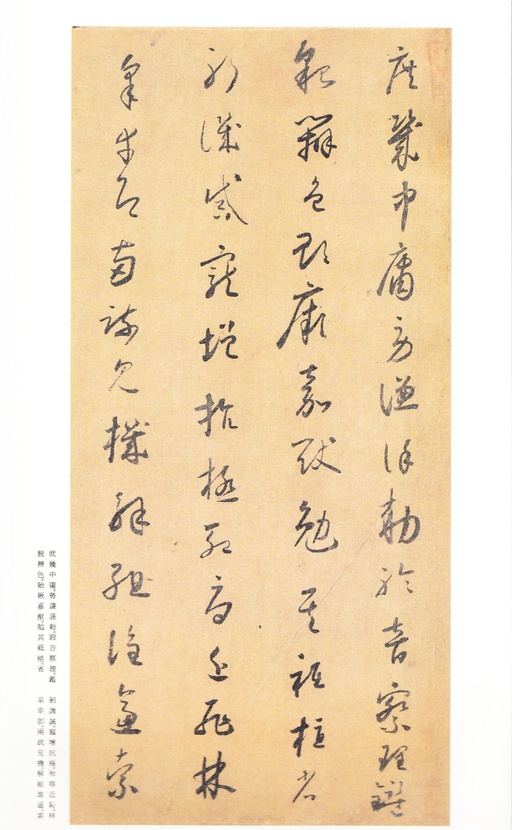 庶幾中庸勞謙謹勅聆音察理鑑
貌辨色貽厥嘉猷勉其祗植省
躬譏誡寵增抗極殆辱近恥林
皋幸即兩疏見機解組誰逼索
庶幾中庸，勞謙謹勅，聆音察理，鑑
貌辨色，貽厥嘉猷，勉其祗植，省
躬譏誡，寵增抗極，殆辱近恥，林
皋幸即，兩疏見機，解組誰逼，索